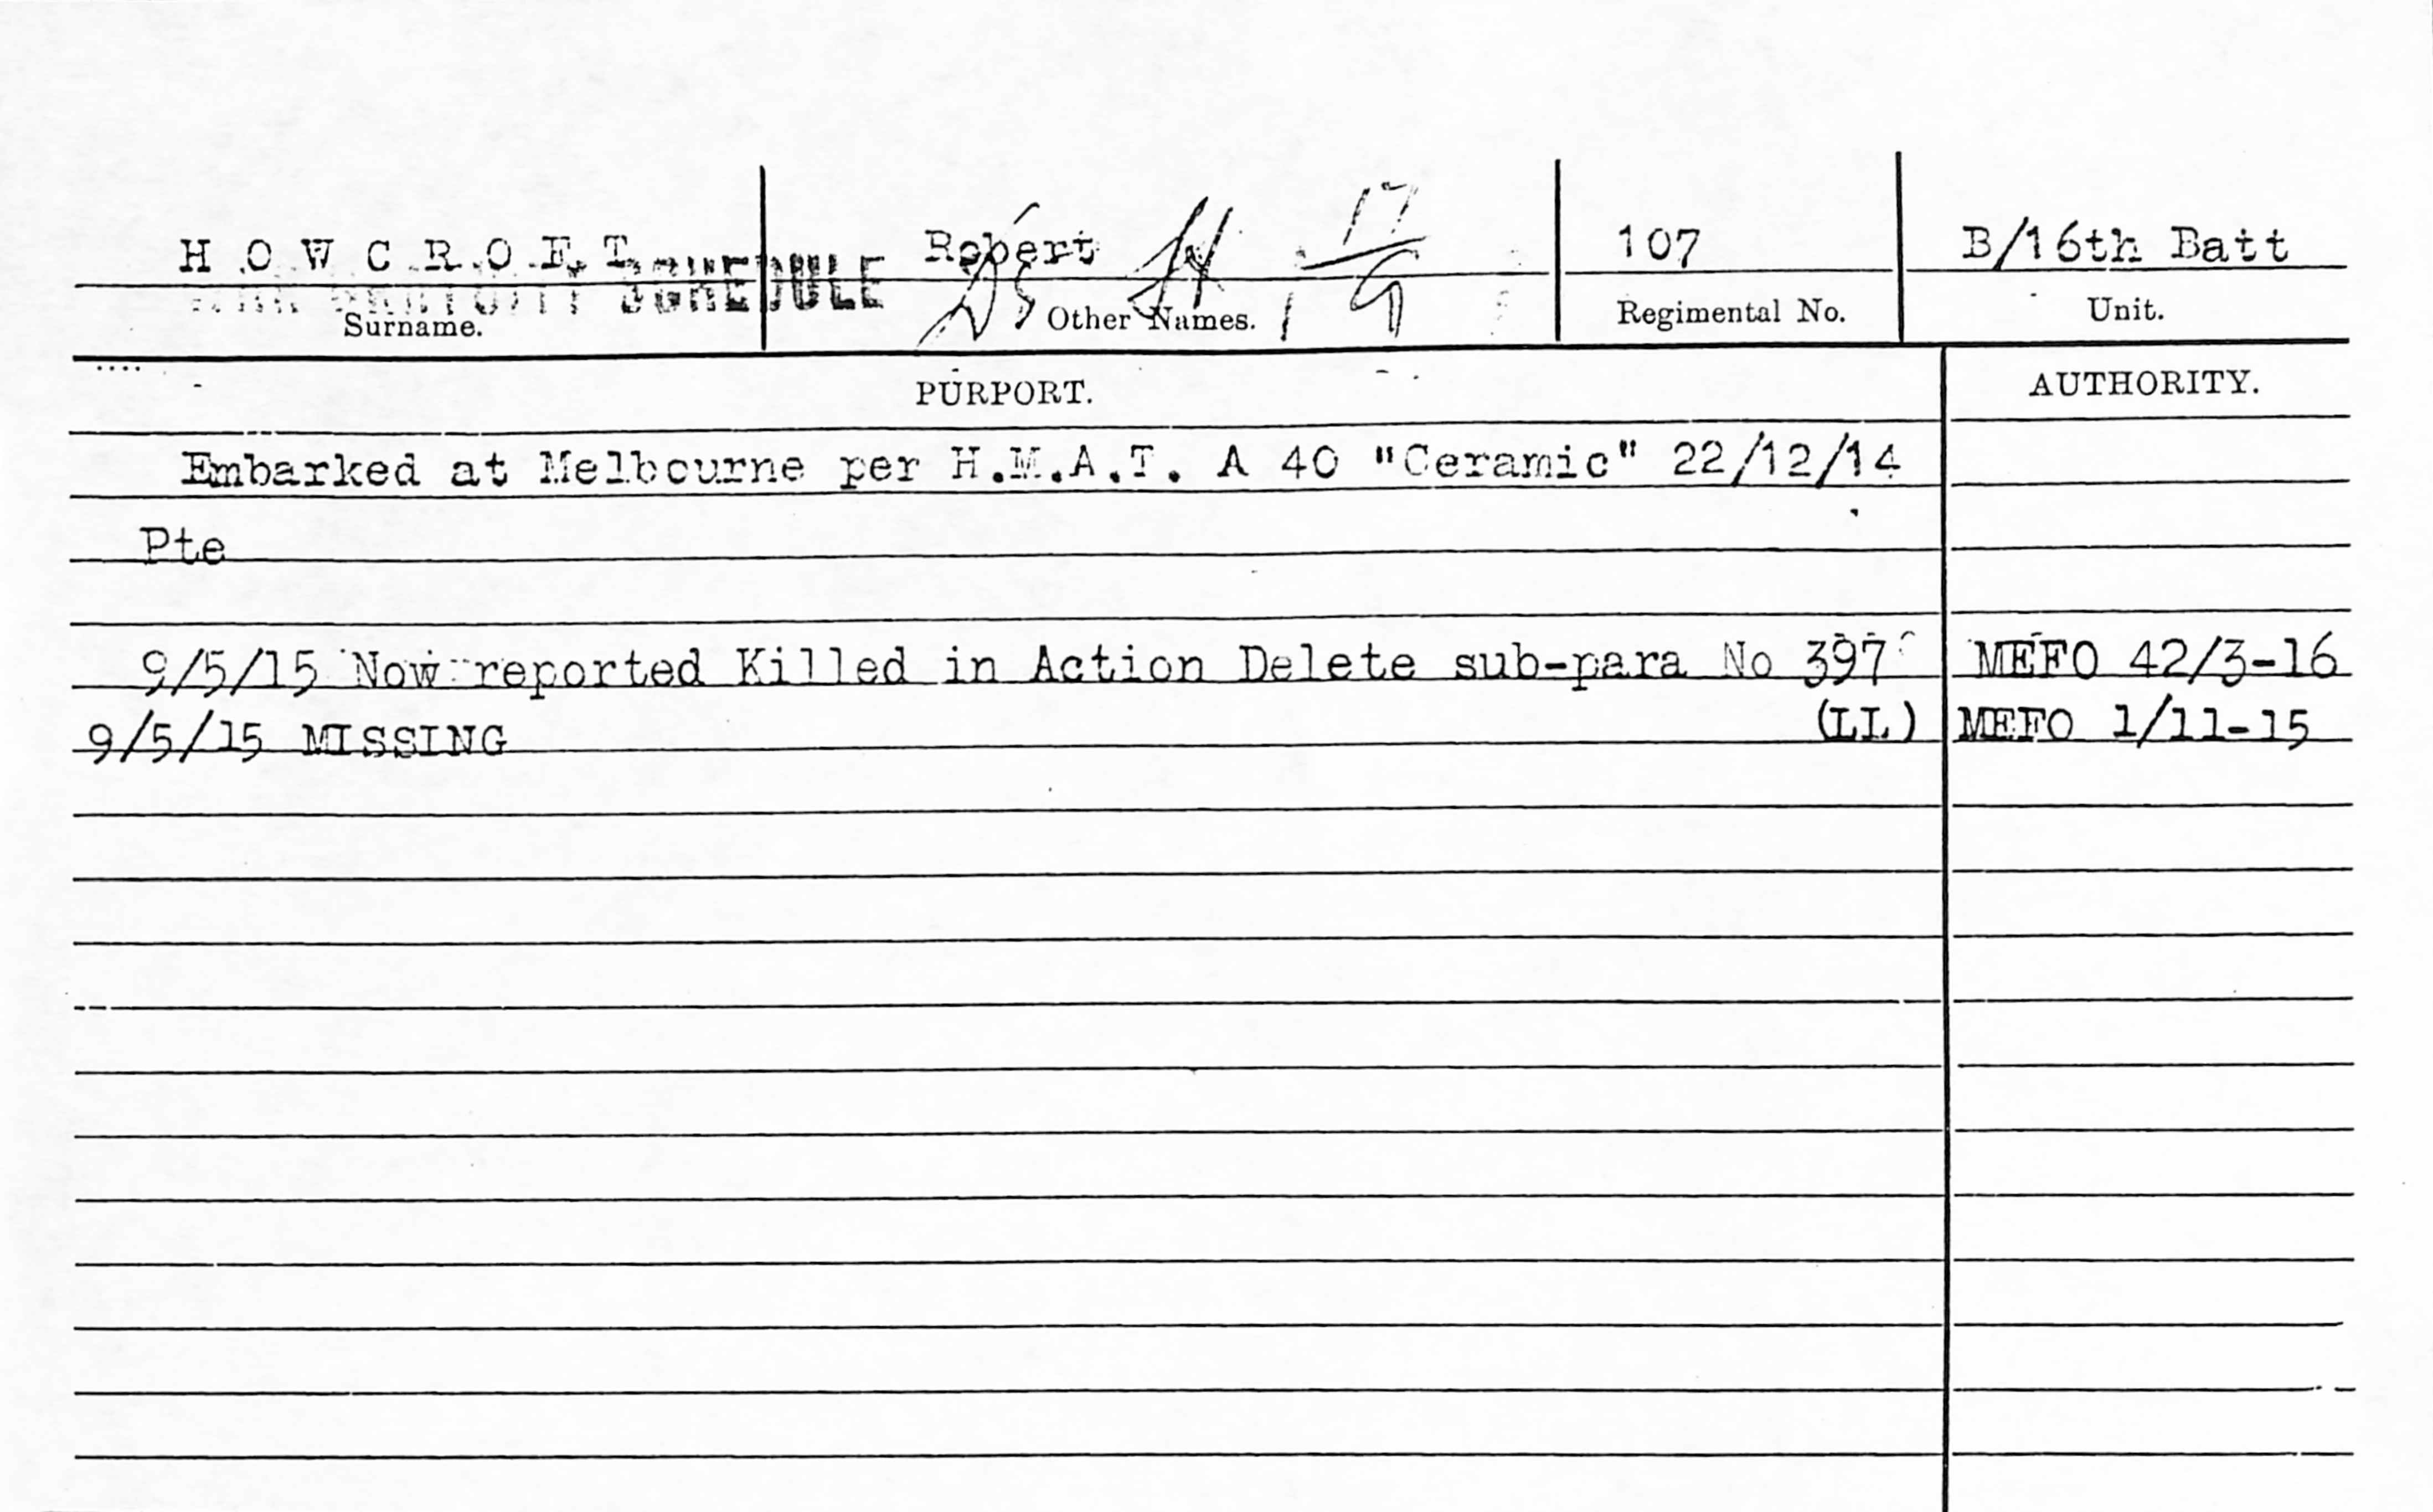 H O W C R O F T Robert 107 B/16th Batt
SCHEDULE
Surname. Other Names. Regimental No. Unit.
PURPORT. AUTHORITY.
Embarked at Melbourne per H.M.A.T. A 40 "Ceramic" 22/12/14
Pte
9/5/15 Now reported Killed in Action Delete sub-para No 397 MEFO 42/3-16
9/5/15 MISSING (LL) MEFO 1/11-15